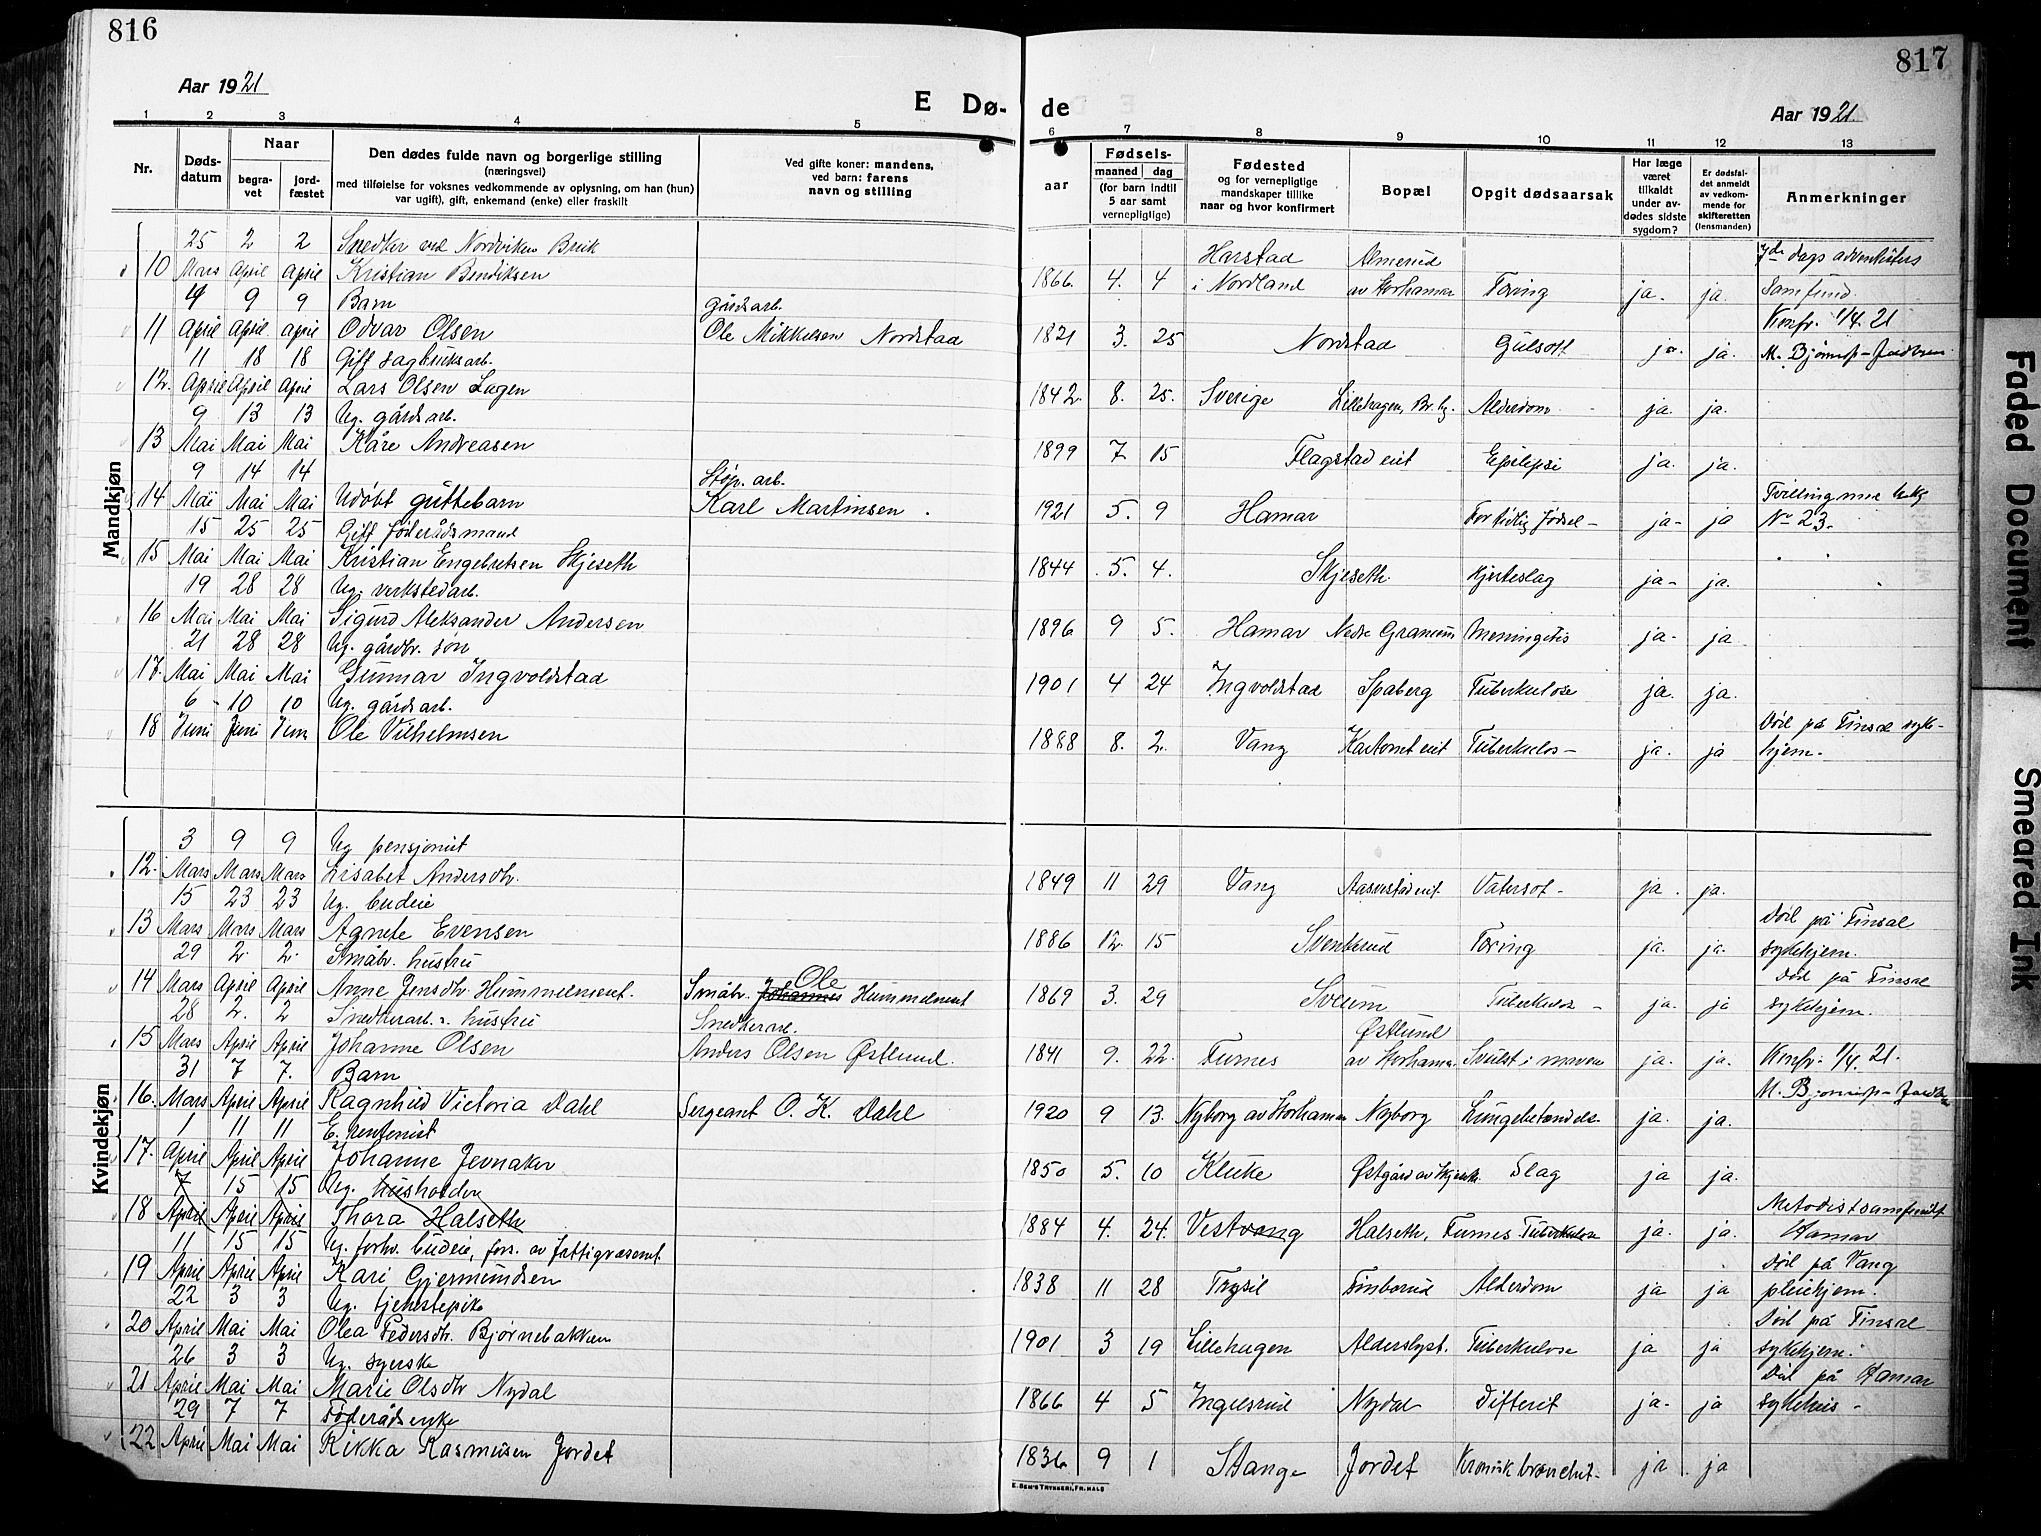 816
817
Aar 1921
E Dø-
de
Aar 1921
1 2 3 4 5 6 7 8 9 10 11 12 13
Nr.
Døds-
datum
Naar
begra-
vet
jord-
fæstet
Den dødes fulde navn og borgerlige stilling
(næringsvei)
med tilføielse for voksnes vedkommende av oplysning, om han (hun)
var ugift), gift, enkemand (enke) eller fraskilt
Ved gifte koner: mandens,
ved barn: farens
navn og stilling
Fødsels-
aar
maaned
dag
(for barn indtil
5 aar samt
vernepligtige)
Fødested
og for vernepligtige
mandskaper tillike
naar og hvor konfirmert
Bopæl
Opgit dødsaarsak
Har læge
været
tilkaldt
under av-
dødes sidste
sygdom?
Er dødsfal-
det anmeldt
av vedkom-
mende for
skifteretten
(lensmanden)
Anmerkninger
Mandkjøn
25 2 2 Snedker ved Nordviken Bruk Harstad Almerud 7de dags adventisters
10 Mars April April Kristian Bendiksen 1866 4. 4 i Nordland av Storhamar Tæring ja. ja. Samfund.
4 9 9 Barn gårdsarb. Konfr. 1/4. 21
11 April April April Odvar Olsen Ole Mikkelsen Nordstad 1821 3. 25 Nordstad Gulsott ja. ja. M. Bjørnsp-Jacobsen
11 18 18 Gift sagbruksarb.
12. April April April Lars Olsen Lagen 1842 8. 25. Sverige Lillehagen, Br. by. Alderdom ja. ja.
9 13 13 Ug. gårdsarb.
13 Mai Mai Mai Kåre Andreasen 1899 7 15 Flagstad eiet Epilepsi ja. ja.
9 14 14 Støp. arb. Tvilling med
14 Mai Mai Mai Udøbt guttebarn Karl Martinsen. 1921 5. 9 Hamar For tidlig fødsel - ja- ja No 23.
15 25 25 Gift føderådsmand
15 Mai Mai Mai Kristian Engebretsen Skjeseth 1844 5. 4. Skjeseth Hjerteslag ja- ja.
19 28 28 Ug. verkstedarb.
16 Mai Mai Mai Sigurd Aleksander Andersen 1896 9 5. Hamar Nedre Meningitis ja- ja
21 28 28 Ug. gårdbr. søn
17. Mai Mai Mai Gunnar Ingvoldstad 1901 4 24 Ingvoldstad Spaberg Tuberkulose ja. ja.
6 10 10 Ug. gårdsarb. Død på Finsal syke-
18 Juni Juni Juni Ole Vilhelmsen 1888 8. 2. Vang Tuberkulos- ja. ja hjem.
Kvindekjøn
3 9 9 Ug pensjonist
12. Mars Mars Mars Lisabet Andersdtr. 1849 11 29 Vang Vatersot- ja. ja.
15 23 23 Ug. budeie Død på Finsal
13 Mars Mars Mars Agnete Evensen 1886 12. 15 Svenkerud Tæring ja. ja. sykehjem.
29 2. 2. Småbr. hustru Ole Død på Finsal
14 Mars April April Anne Jensdtr. Hummelment. Småbr. Johannes Hummelment 1869 3. 29 Sveum Tuberkulose - ja. ja sykehjem.
28 2. 2 Snedkerarb.s hustru Snedkerarb. Østlund
15 Mars April April Johanne Olsen Anders Olsen Østlund. 1841 9. 22. Furnes av Storhamar Svulst i maven ja. ja. Konfr. 1/4. 21.
31 7 7. Barn M. Bjørnsp-Jacobsen
16. Mars April April Ragnhild Victoria Dahl Sergeant O. K. Dahl 1920 9 13. Nyborg av Storhamar Nyborg Lungebetændels- ja. ja.
1 11 11 E. rentenist
17. April April April Johanne Jevnaker 1850 5. 10 Kluke Østgård av Skjeseth Slag ja ja.
7 15 15 Ug. husholder Metodistsamfundet
18 April April April Thora Halseth 1884 4. 24. Vestvang Halseth, Furnes Tuberkulose ja. ja. Hamar
11 15 15 Ug. forhv. budeie, fors. av fattigvæsenet Død på Vang
19 April April April Kari Gjermundsen 1838 11 28 Trysil Finborud Alderdom ja ja pleiehjem.
22 3 3 Ug. tjenstepike Død på Finsal
20 April Mai Mai Olea Pedersdtr. Bjørnebakken 1901 3 19 Lillehagen Alderslyst. Tuberkulose ja ja sykehjem.
26 3 3 Ug. syerske Død på Hamar
21 April Mai Mai Marie Olsdtr Nydal 1866 4 5 Ingelsrud Nydal Difterit ja- ja sykehus -
29 7 7 Føderådsenke
22 April Mai Mai Rikka Rasmusen Jordet 1836 9 1 Stange Jordet Kronisk bronchit- ja. ja
E. SEM'S TRYKKERI, FR.HALD
Faded Document
Smeared Ink